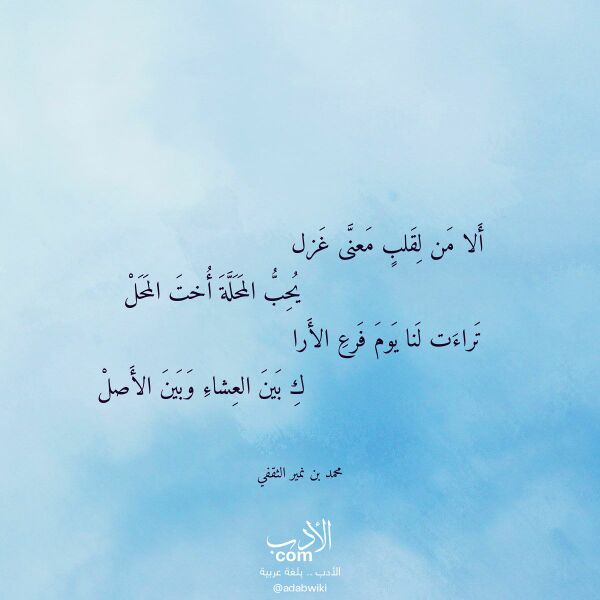 أَلا مَن لِقَلبٍ مَعنَّى غَزل
يُحِبُّ المَحَلَّةَ أُختَ المَحَلْ
تَراءَت لَنا يَومَ فَرعِ الأَرا
كِ بَينَ العِشاءِ وَبَينَ الأَصلْ
محمد بن نمير الثقفي
الأدب
com
الأدب .. بلغة عربية
@adabwiki